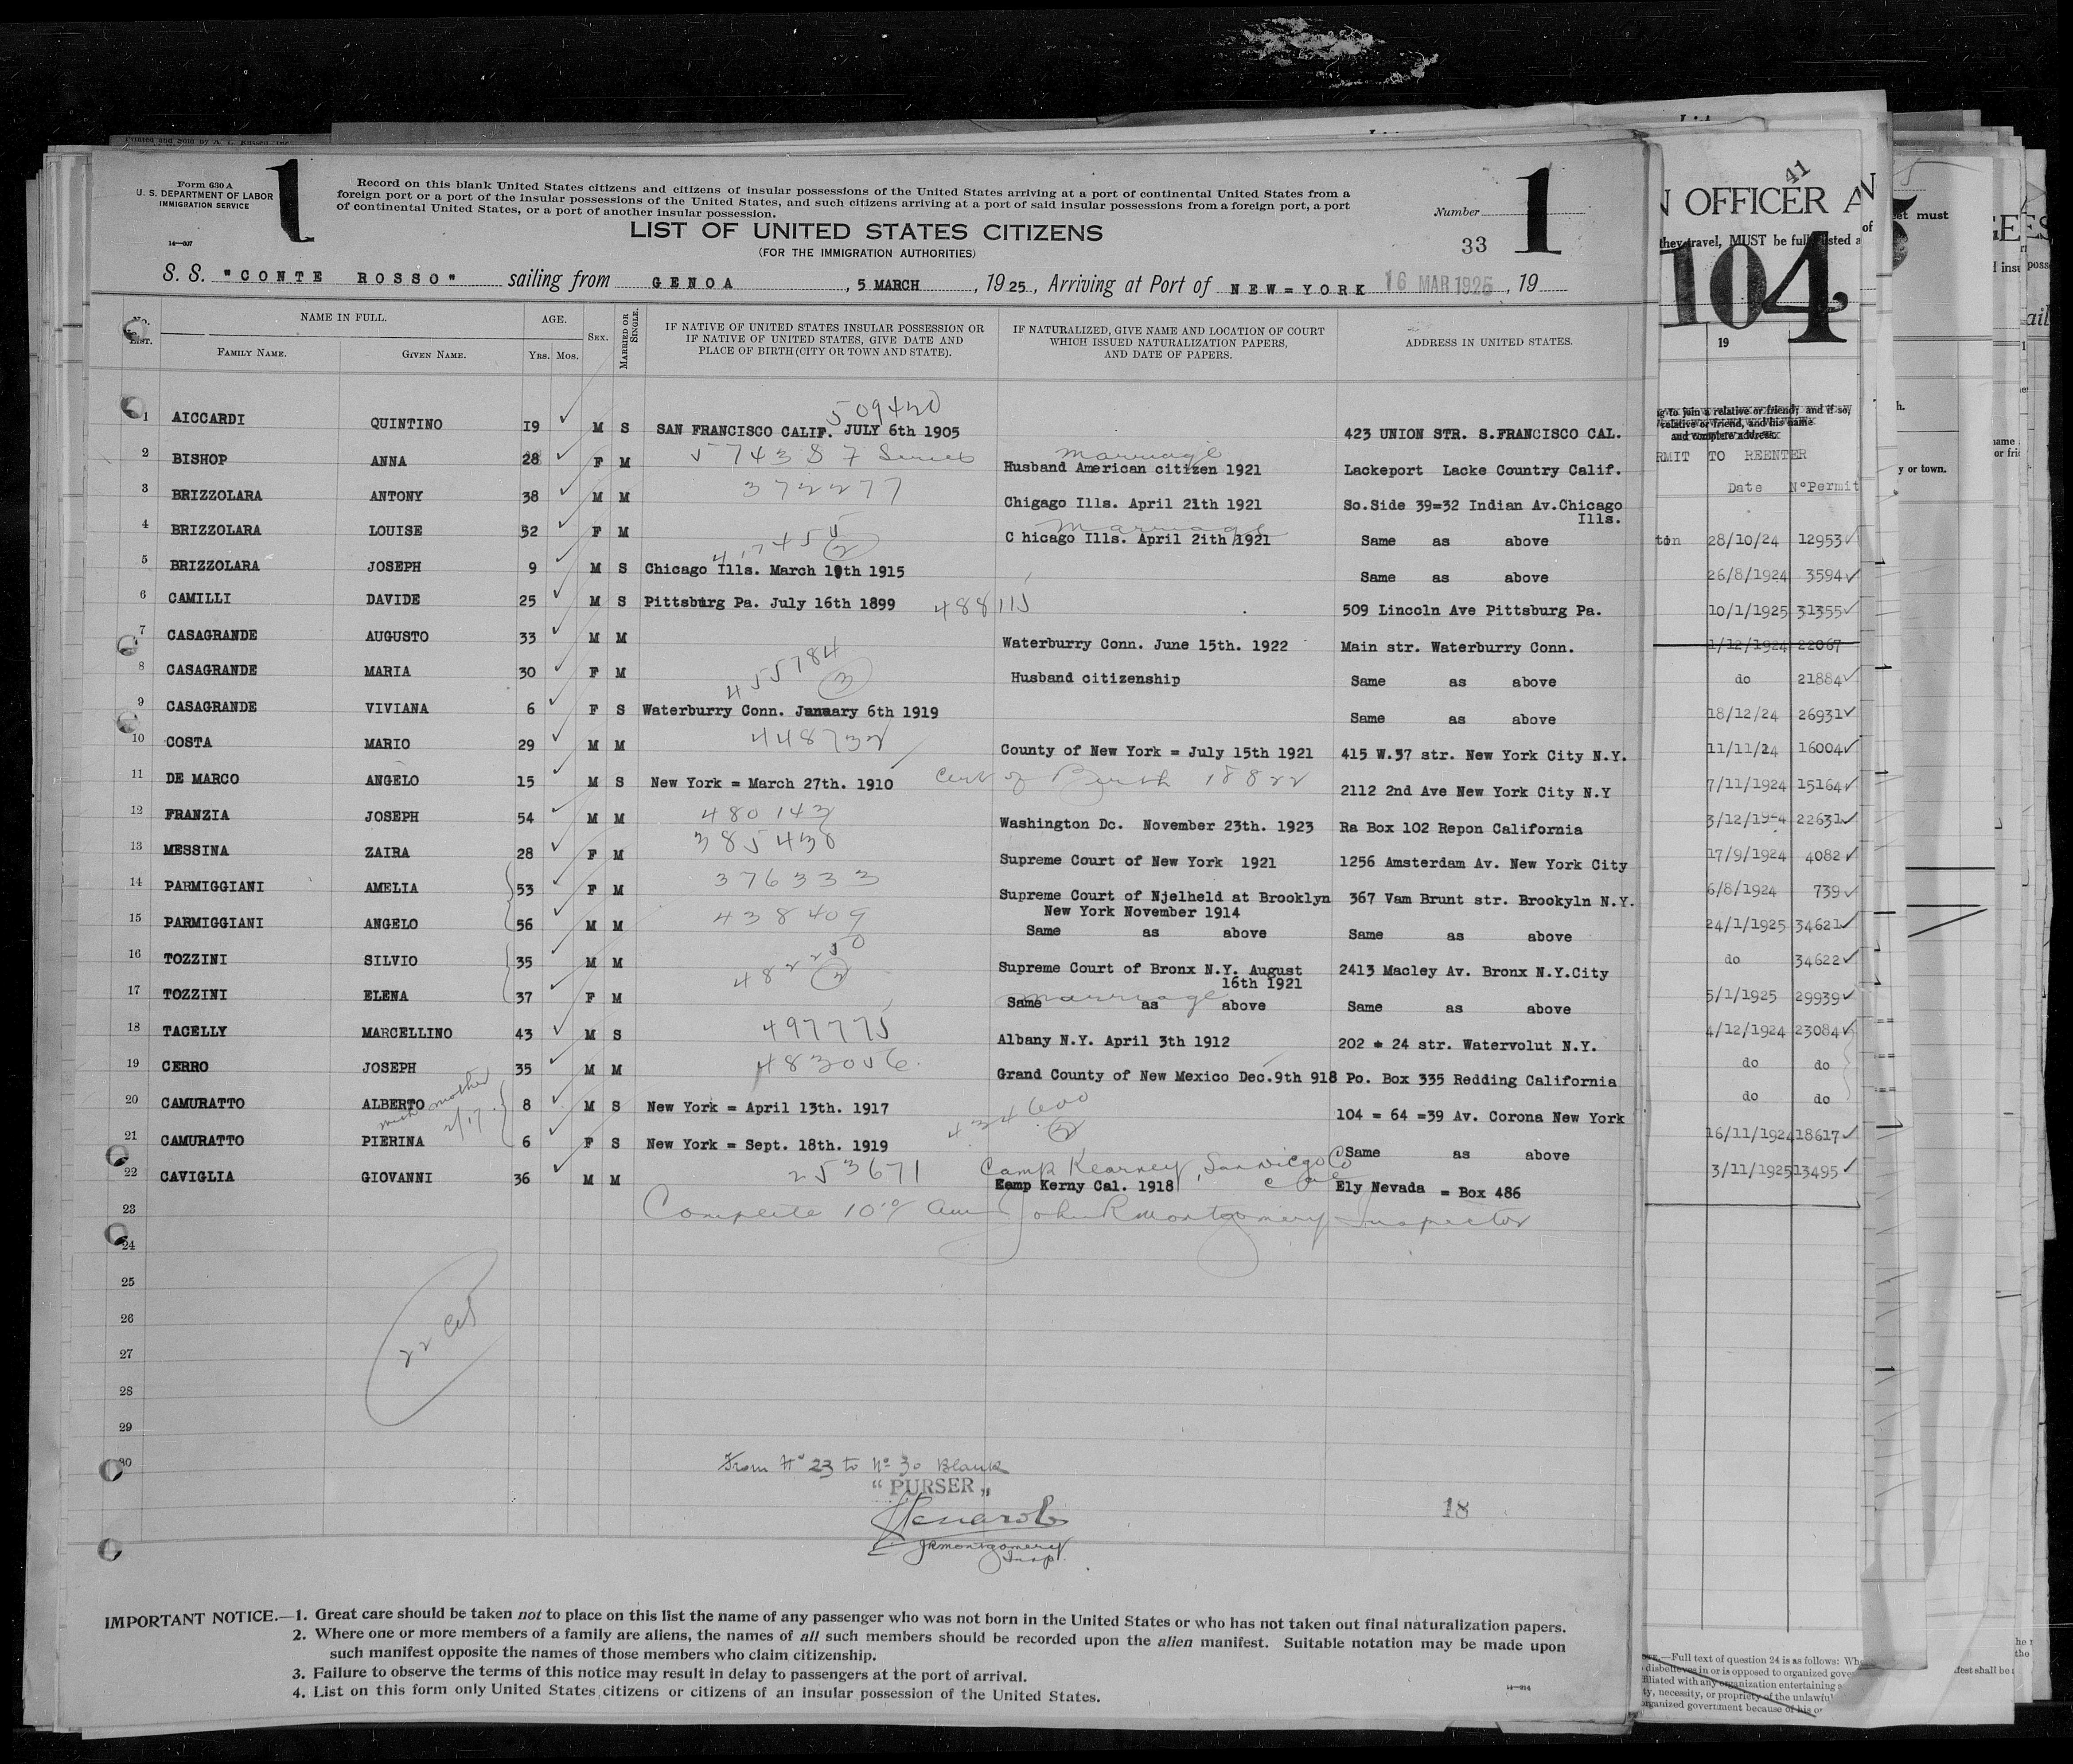 Form 630 A
U. S. DEPARTMENT OF LABOR
IMMIGRATION SERVICE
14—607
1
Record on this blank United States citizens and citizens of insular possessions of the United States arriving at a port of continental United States from a
foreign port or a port of the insular possessions of the United States, and such citizens arriving at a port of said insular possessions from a foreign port, a port
of continental United States, or a port of another insular possession.
Number
33
1
LIST OF UNITED STATES CITIZENS
(FOR THE IMMIGRATION AUTHORITIES)
S. S. "CONTE ROSSO" sailing from GENOA, 5 MARCH, 1925, Arriving at Port of NEW=YORK 16 MAR 1925, 19
No. List. NAME IN FULL. AGE. SEX. MARRIED OR SINGLE. IF NATIVE OF UNITED STATES INSULAR POSSESSION OR IF NATIVE OF UNITED STATES, GIVE DATE AND PLACE OF BIRTH (CITY OR TOWN AND STATE). IF NATURALIZED, GIVE NAME AND LOCATION OF COURT WHICH ISSUED NATURALIZATION PAPERS, AND DATE OF PAPERS. ADDRESS IN UNITED STATES.
FAMILY NAME. GIVEN NAME. YRS. MOS.
509420
1 AICCARDI QUINTINO 19 M S SAN FRANCISCO CALIF. JULY 6th 1905 423 UNION STR. S.FRANCISCO CAL.
574387 Series marriage
2 BISHOP ANNA 28 F M Husband American citizen 1921 Lackeport Lacke Country Calif.
372277
3 BRIZZOLARA ANTONY 38 M M Chigago Ills. April 21th 1921 So.Side 39=32 Indian Av.Chicago Ills.
marriage
4 BRIZZOLARA LOUISE 32 F M C hicago Ills. April 2ith 1921 Same as above
417455 (2)
5 BRIZZOLARA JOSEPH 9 M S Chicago Ills. March 19th 1915 Same as above
6 CAMILLI DAVIDE 25 M S Pittsburg Pa. July 16th 1899 488115 509 Lincoln Ave Pittsburg Pa.
7 CASAGRANDE AUGUSTO 33 M M Waterburry Conn. June 15th. 1922 Main str. Waterburry Conn.
455784 (3)
8 CASAGRANDE MARIA 30 F M Husband citizenship Same as above
9 CASAGRANDE VIVIANA 6 F S Waterburry Conn. January 6th 1919 Same as above
448732
10 COSTA MARIO 29 M M County of New York = July 15th 1921 415 W.37 str. New York City N.Y.
11 DE MARCO ANGELO 15 M S New York = March 27th. 1910 Cert of Birth 18822 2112 2nd Ave New York City N.Y
480143
12 FRANZIA JOSEPH 54 M M Washington Dc. November 23th. 1923 Ra Box 102 Repon California
385430
13 MESSINA ZAIRA 28 F M Supreme Court of New York 1921 1256 Amsterdam Av. New York City
376333
14 PARMIGGIANI AMELIA 53 F M Supreme Court of Njelheld at Brooklyn New York November 1914 367 Vam Brunt str. Brookyln N.Y.
438409
15 PARMIGGIANI ANGELO 56 M M Same as above Same as above
482250 (2)
16 TOZZINI SILVIO 35 M M Supreme Court of Bronx N.Y. August 16th 1921 2413 Macley Av. Bronx N.Y.City
marriage
17 TOZZINI ELENA 37 F M Same as above Same as above
497775
18 TACELLY MARCELLINO 43 M S Albany N.Y. April 3th 1912 202 * 24 str. Watervolut N.Y.
483056
19 CERRO JOSEPH 35 M M Grand County of New Mexico Dec.9th 918 Po. Box 335 Redding California
20 CAMURATTO ALBERTO 8 M S New York = April 13th. 1917 104 = 64 =39 Av. Corona New York
with mother 2/17
434600 (2)
21 CAMURATTO PIERINA 6 F S New York = Sept. 18th. 1919 Same as above
253671 Camp Kearney, San Diego Co Cal
22 CAVIGLIA GIOVANNI 36 M M Kamp Kerny Cal. 1918 Ely Nevada = Box 486
23 Complete 10 am John R Montgomery Inspector
24
25
26
22 cit
27
28
29
30
From N° 23 to N° 30 Blank
"PURSER"
JRMontgomery
Insp.
18
IMPORTANT NOTICE.—1. Great care should be taken not to place on this list the name of any passenger who was not born in the United States or who has not taken out final naturalization papers.
2. Where one or more members of a family are aliens, the names of all such members should be recorded upon the alien manifest. Suitable notation may be made upon
such manifest opposite the names of those members who claim citizenship.
3. Failure to observe the terms of this notice may result in delay to passengers at the port of arrival.
4. List on this form only United States citizens or citizens of an insular possession of the United States.
41
N OFFICER A
they travel, MUST be fully listed a
104
19
g to join a relative or friend; and if so,
relative or friend, and his name
and complete address.
RMIT TO REENTER
Date N°Permit
ton 28/10/24 12953
26/8/1924 3594
10/1/1925 31355
1/12/1924 22067
do 21884
18/12/24 26931
11/11/24 16004
7/11/1924 15164
3/12/1924 22631
17/9/1924 4082
6/8/1924 739
24/1/1925 34621
do 34622
5/1/1925 29939
4/12/1924 23084
do do
do do
16/11/1924 18617
3/11/1925 13495
—Full text of question 24 is as follows: Wh
disbelieves in or is opposed to organized gove
filiated with any organization entertaining a
ty, necessity, or propriety of the unlawful
organized government because of his o
et must
y or town.